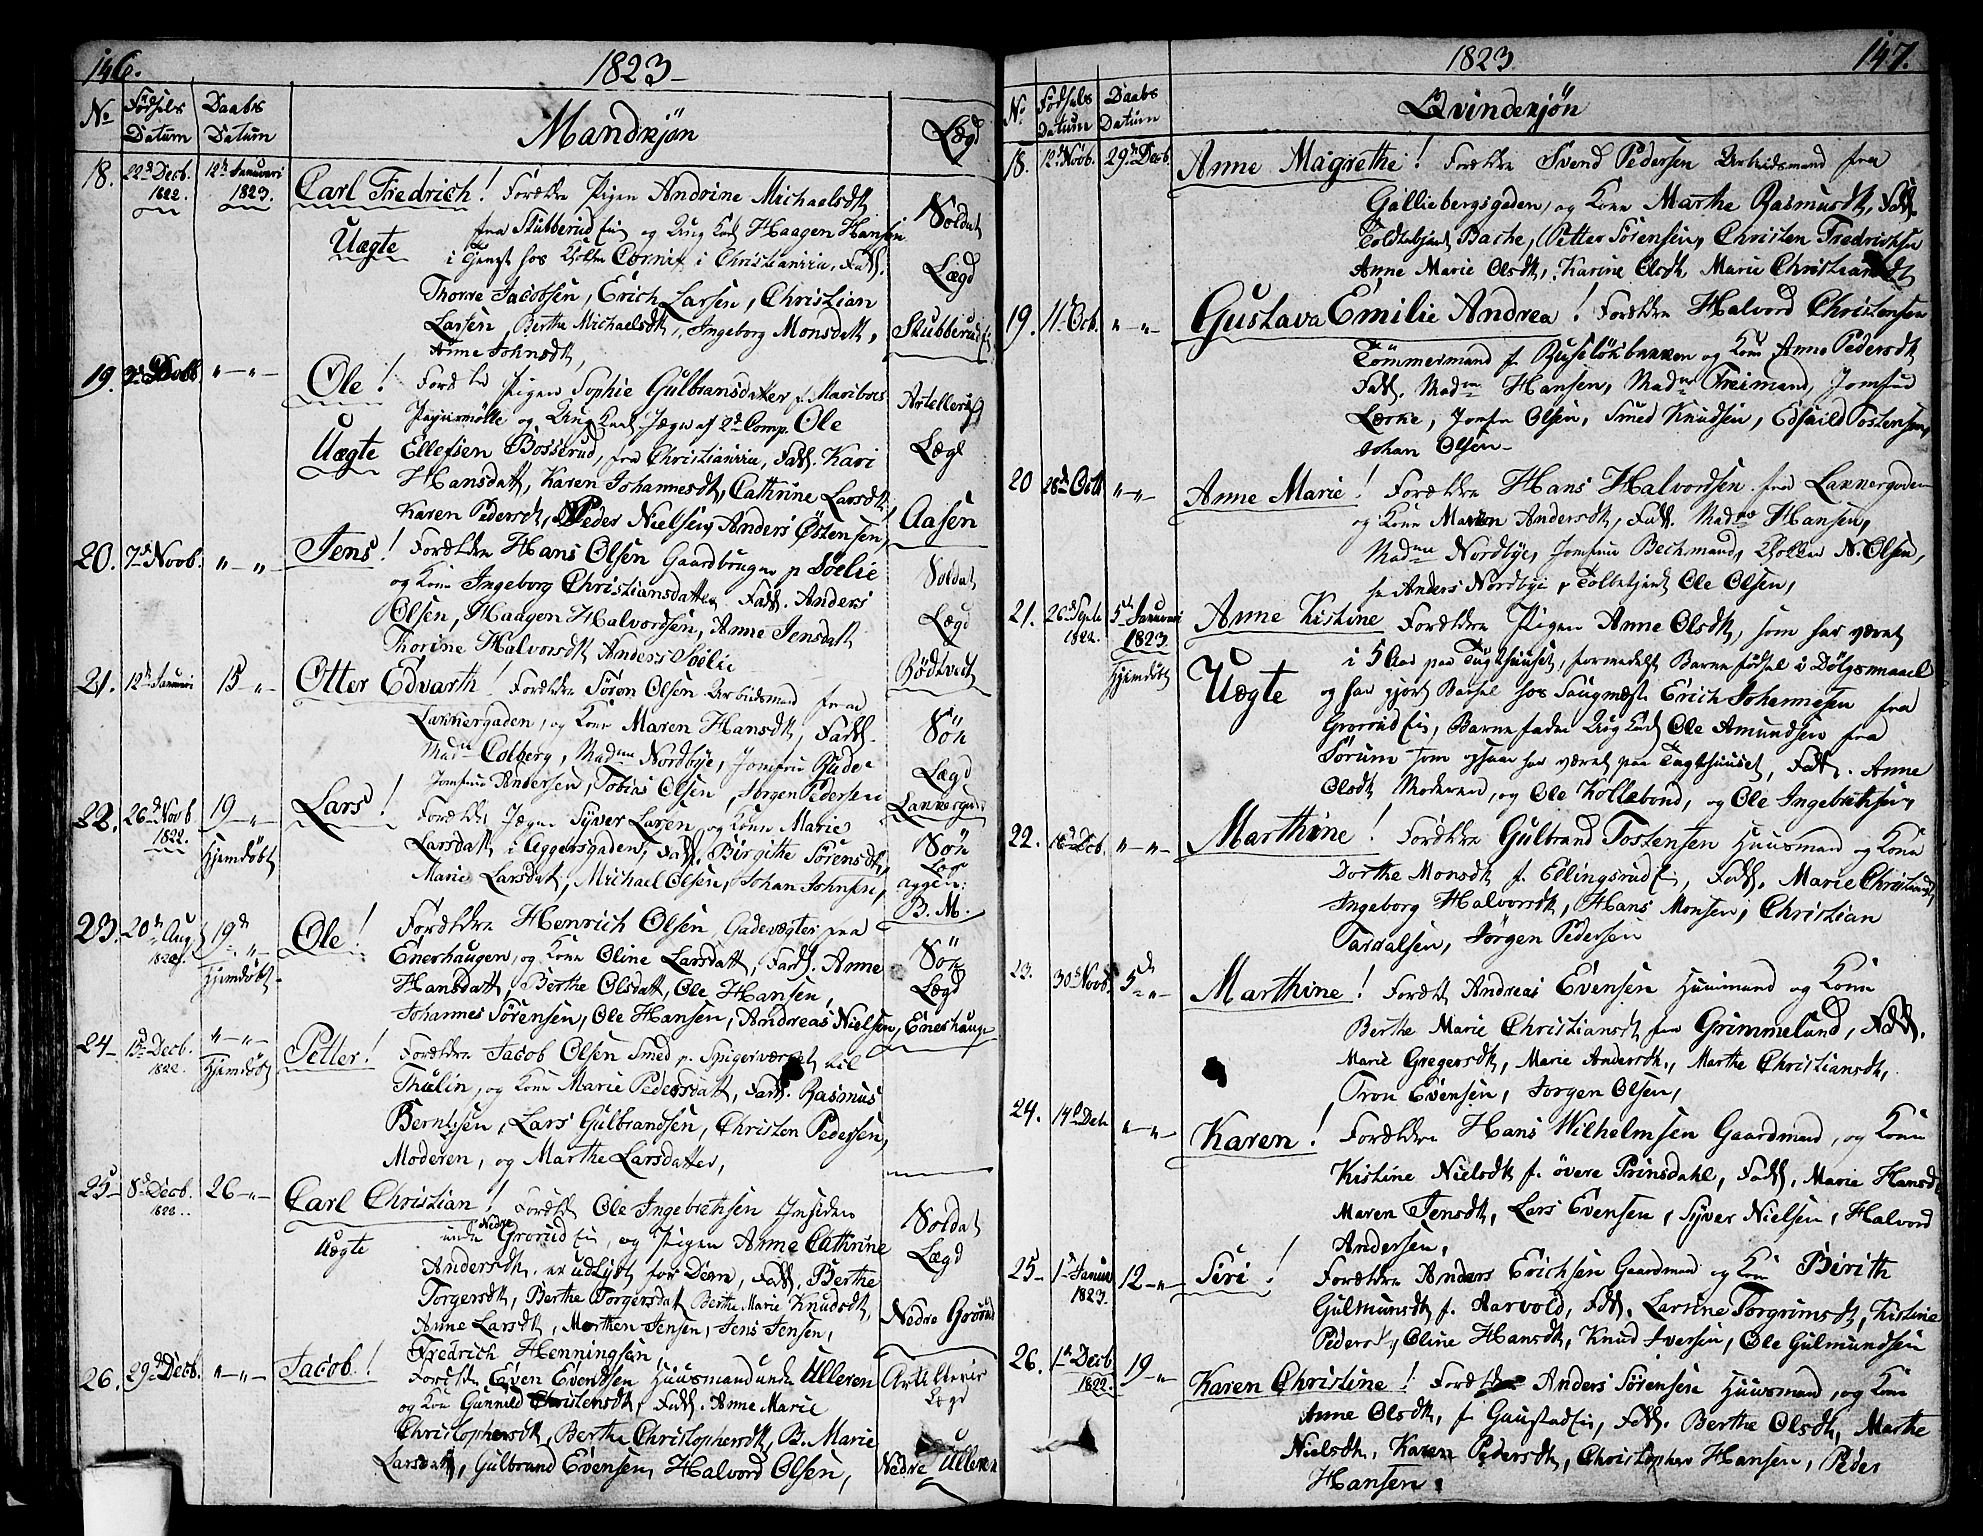 146.
1823
No Fødsels Datum Daabs Datum Mandkjøn Lægd
18. 22de Decb. 1822. 12te Januari 1823. Carl Fredrich! Forældre Pigen Andrine Michaelsdt
Uægte fra Stubberud Eie og Ung Karl Haagen Hansen Soldat
i Tieneste hos Cornif i Christiania, Fadd. Lægd
Thorre Jacobsen, Erich Larsen, Christian
Larsen, Berthe Michaelsdt, Ingeborg Monsdatt, Stubberud
Anne Johnsdt,
19. "-"- Ole! Forældre Pigen Sophie Gulbransdatter p. Mariboes Artellerie
Papiirmølle og Ung Karl Jæger af 2de Comp. Ole
Uægte Ellefsen Bosserud, fra Christiania, Fadd. Kari Lægd
Hansdatt, Karen Johannesdt, Cathrine Larsdt
Karen Pedersdt, Peder Nielsen, Anders Østensen, Aasen
20. 7de Novb. "-"- Jens! Forældre Hans Olsen Gaardbruger p Søelie
og Kone Ingeborg Christiansdatter Fadd. Anders Soldat
Olsen, Haagen Halvordsen, Anne Jensdatt Lægd
Thorine Halvorsdt Anders Søelie
21. 12te Januari 15-"- Otter Edvarth! Forældre Søren Olsen Arbeidsmand fra Bødtvedt
Lakkergaden, og Kone Maren Hansdt, Fadd. Søn
Madm Colberg, Madme Nordbye, Jomfru Rude
Jomfru Andersen, Tobias Olsen, Jørgen Pedersen Lægd
22. 26de Novb 1822. 19-"- Hjemdøbt Lars! Forældre Jæger Syver Larsen og Kone Marie Lakkergad
Larsdatt i Aggersgaden, Fadd. Birgithe Sørensdt, Søn
Marie Larsdat, Michael Olsen, Johan Johnsen, Læg
aggers:
B. M.
23. 20de Aug. 1822. 19de "- Hjemdøbt Ole! Forældre Henrich Olsen, Gadevægter fra
Enerhaugen, og Kone Oline Larsdatt, Fadd. Anne Søn
Hansdatt, Berthe Olsdatt, Ole Hansen, Lægd
Johannes Sørensen, Ole Hansen, Andreas Nielsen, Enerhauge
24- 15de Decb. 1822. "-"- Hjemdøbt Petter! Forældre Jacob Olsen Smed p. Spigerværket til
Thulin, og Kone Marie Pedersdatt, Fadd. Rasmus
Berntsen, Lars Gulbrandsen, Christen Pedersen,
Moderen, og Marthe Larsdatter,
25- 8de Decb. 1822. 26-"- Carl Christian! Forældre Ole Ingebrethsen Inderst
Uægte under Nedre Grorud Eie, og Pigen Anne Cathrine Soldat
Andersdt. er udlyst for Dem, Fadd. Berthe Lægd
Torgersdt, Berthe Torgersdat Berthe Marie Knudsdt,
Anne Larsdt, Morthen Jensen, Jens Jensen, Nedre Grorud
Fredrich Henningsen
26. 29de Decb. "-"- Jacob! Forældre Even Eventsen Huusmand under Ulleren Artillerie
og Kone Gunnild Christensdt, Fadd. Anne Marie Lægd
Christophersdt, Berthe Christophersdt, B. Marie
Larsdatt, Gulbrand Evensen, Halvord Olsen, Nedre Ulleren
1823 147.
No Fødsels Datum Daabs Datum Qvindekjøn
18. 12te Novb. 29de Decb. Anne Magrethe! Forældre Svend Pedersen Arbeidsmand fra
Galliebergsgaden, og Kone Marthe Rasmusdt, Fadd.
Toldbetjent Bache, Petter Sørensen, Christen Fredrichsen
Anne Marie Olsdt, Karine Olsdt, Marie Christiansdt
19. 11te Octb. "-"- Gustava Emilie Andrea! Forældre Halvord Christensen
Tømmermand f. Ruseløkbakken og Kone Anne Pedersdt
Fadd. Madm Hansen, Madm Freimand, Jomfrue
Lærke, Jomfru Olsen, Smed Knudsen, Edsvild Tostensen,
Johan Olsen-
20 28de Octb "-"- Anne Marie! Forældre Hans Halvordsen fra Lakkergaden
og Kone Maren Andersdt, Fadd. Madme Hansen,
Madme Nordbye, Jomfrue Bechmand, N. Olsen,
Hr Anders Nordbye, Tolbetjent Ole Olsen,
21. 26de Septb 1822. 5te Januari 1823 Hjemdøbt Anne Kistine Forældre Pigen Anne Olsdt, som har været
i 5 Aar paa Tugthuuset, formedelst Barnefødsel i Dølgsmaael
Uægte og har gjort Barsel hos Saugmest. Erich Johannesen fra
Grorud Eie, Barnefader Ung Karl Ole Amundsen fra
Sørum som ogsaa har været paa Tugthuuset, Fadd. Anne
Olsdt Moderen, og Ole Kollebond, og Ole Ingebrethsen,
22. 18de Decb. "-"- Marthine! Forældre Gulbrand Tostensen Huusmand og Kone
Dorthe Monsdt f. Ellingsrud Eie, Fadd. Marie Christiansdt,
Ingeborg Halvorsdt, Hans Monsen, Christian
Taraldsen, Jørgen Pedersen
23. 30te Novb. 5te "- Marthine! Forældr Andreas Evensen Huusmand og Kone
Berthe Marie Christiansdt fra Grimmelund, Fadd.
Marie Gregersdt, Marie Andersdt, Marthe Christiansdt,
Tron Evensen, Jorgen Olsen,
24. 14de Decb "-"- Karen! Forældre Hans Wilhelmsen Gaardmand, og Kone
Kistine Nielsdt f. øvere Prinsdahl, Fadd. Marie Hansdt
Maren Jensdt, Lars Evensen, Syver Nielsen, Halvord
Andersen,
25- 1te Januar 1823. 12-"- Siri! Forældre Anders Erichsen Gaardmand og Kone Birith
Gulmunsdt f. Aarvold, Fadd. Larsine Torgrimsdt, Kistine
Pedersdt, Oline Hansdt, Knud Iversen, Ole Gulmundsen
26. 1te Decb 1822. 19-"- Karen Christine! Forældre Anders Sørensen Huusmand, og Kone
Anne Olsdt, f. Gaustad Eie, Fadd. Berthe Olsdt, Marthe
Nielsdt, Karen Pedersdt, Christopher Hansen, Peder
Hansen.